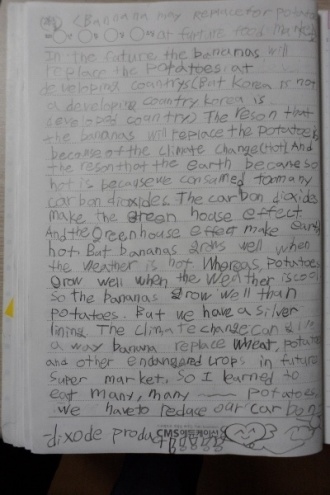 <Banana may replace for potato
at future food market>
In the future, the bananas will
replace the potatoes at
developing countrys(But Korea is not
a developing country korea is
developed country) The reson that
the bananas will replace the potatoes
because of the climate change(hot) And
the reson that the earth became so
hot is because we consumed too many
carbon dioxides. The carbon dioxides
make the Green house effect
And the Greenhouse effect make earth
hot. But bananas grow well when
the weather is hot Whereas, potatoes
Grow well when the weather is cool
so the bananas grow well than
potatoes. But we have a silver
lining. The climate change can give
a way banana replace wheat, potatoes
and other endangered crops in future
super market. So I learned to
eat many, many potatoes
we have to reduce our carbon
dixode product
CMS에듀케이션